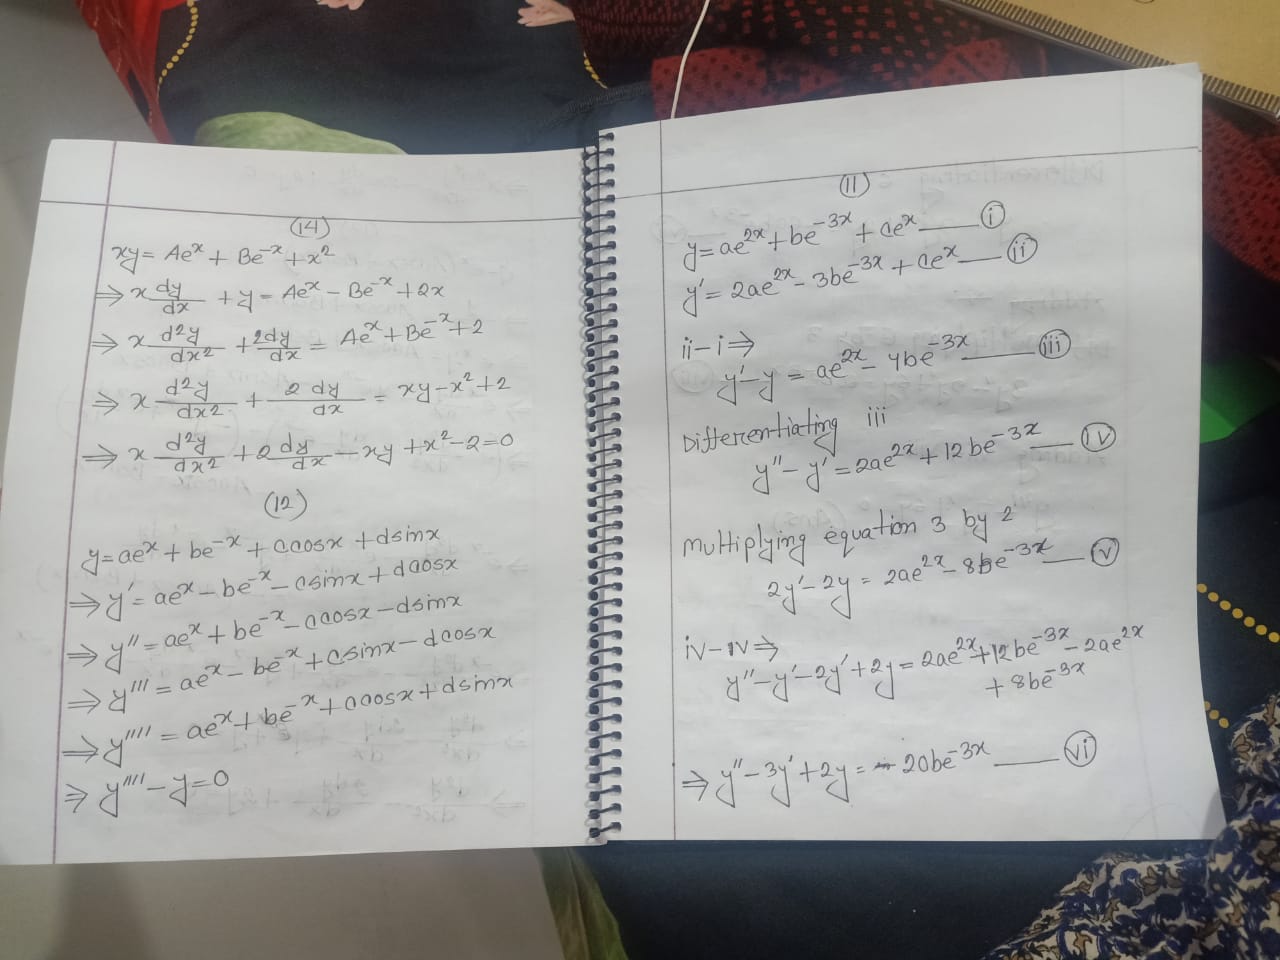 (14)
xy = Ae^x + Be^-x + x^2
⇒ x dy/dx + y = Ae^x - Be^-x + 2x
⇒ x d^2y/dx^2 + 2dy/dx = Ae^x + Be^-x + 2
⇒ x d^2y/dx^2 + 2 dy/dx = xy - x^2 + 2
⇒ x d^2y/dx^2 + 2 dy/dx - xy + x^2 - 2 = 0
(12)
y = ae^x + be^-x + ccosx + dsinx
⇒ y' = ae^x - be^-x - csinx + dcosx
⇒ y'' = ae^x + be^-x - ccosx - dsinx
⇒ y''' = ae^x - be^-x + csinx - dcosx
⇒ y'''' = ae^x + be^-x + ccosx + dsinx
⇒ y'''' - y = 0
(11)
y = ae^2x + be^-3x + ce^x —— (i)
y' = 2ae^2x - 3be^-3x + ce^x —— (ii)
ii - i ⇒
y' - y = ae^2x - 4be^-3x —— (iii)
Differentiating iii
y'' - y' = 2ae^2x + 12be^-3x —— (iv)
Multiplying equation 3 by 2
2y' - 2y = 2ae^2x - 8be^-3x —— (v)
iv - iv ⇒
y'' - y' - 2y' + 2y = 2ae^2x + 12be^-3x - 2ae^2x
+ 8be^-3x
⇒ y'' - 3y' + 2y = 20be^-3x —— (vi)